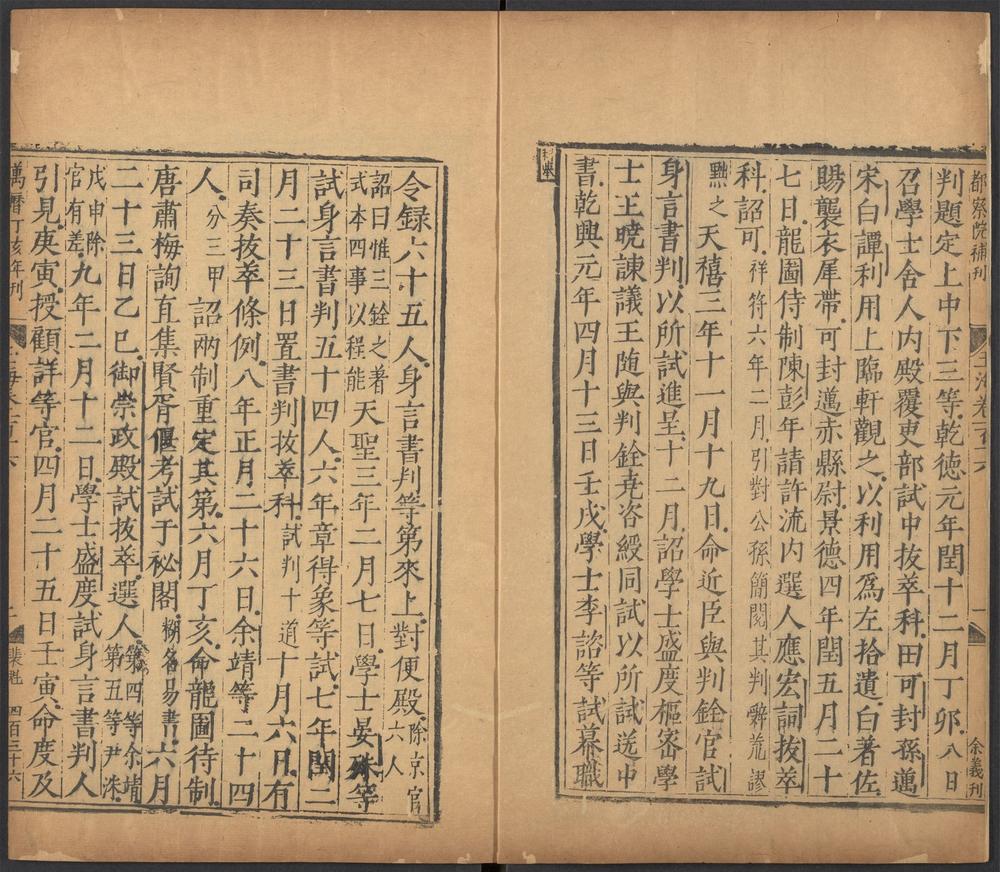 都察院補刊
玉海卷一百十六
一
余義刊
判題定上中下三等乾德元年閏十二月丁卯八日
召學士舍人内殿覆吏部試中拔萃科田可封孫邁
宋白譚利用上臨軒觀之以利用爲左拾遺白著佐
賜襲衣犀帶可封邁赤縣尉景德四年閏五月二十
七日龍圖待制陳彭年請許流内選人應宏詞拔萃
科詔可祥符六年二月引對公孫簡閱其判辭荒謬
黜之天禧三年十一月十九日命近臣與判銓官試
身言書判以所試進呈十二月詔學士盛度樞密學
士王曉諫議王随與判銓堯咨綬同試以所試送中
書乾興元年四月十三日壬戌學士李諮等試幕職
科舉
令録六十五人身言書判等第來上對便殿除京官六人
詔曰惟三銓之著式本四事以程能天聖三年二月七日學士晏殊等
試身言書判五十四人六年章得象等試七年閏二
月二十三日置書判拔萃科試判十道十月六日有
司奏拔萃條例八年正月二十六日余靖等二十四
人分三甲詔兩制重定其第六月丁亥命龍圖待制
唐肅梅詢直集賢胥偃考試于祕閣糊名易書六月
二十三日乙巳御崇政殿試拔萃選人第四等余靖第五等尹洙
戊申除官有差九年二月十二日學士盛度試身言書判人
引見庚寅授顧詳等官四月二十五日壬寅命度及
萬曆丁亥年刊
玉海卷一百十六
二
裴魁
四百三十六